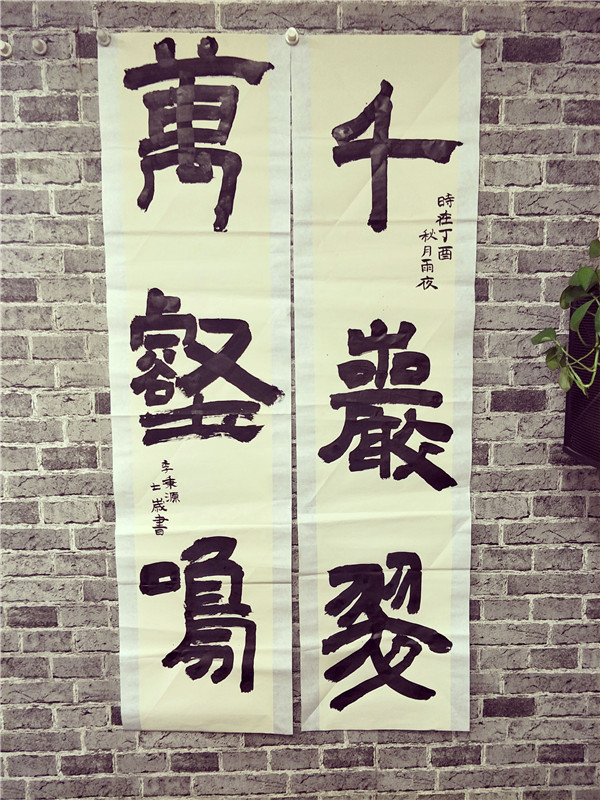 千巖
時在丁酉
秋月雨夜
萬壑鳴
李秉源
七歲書